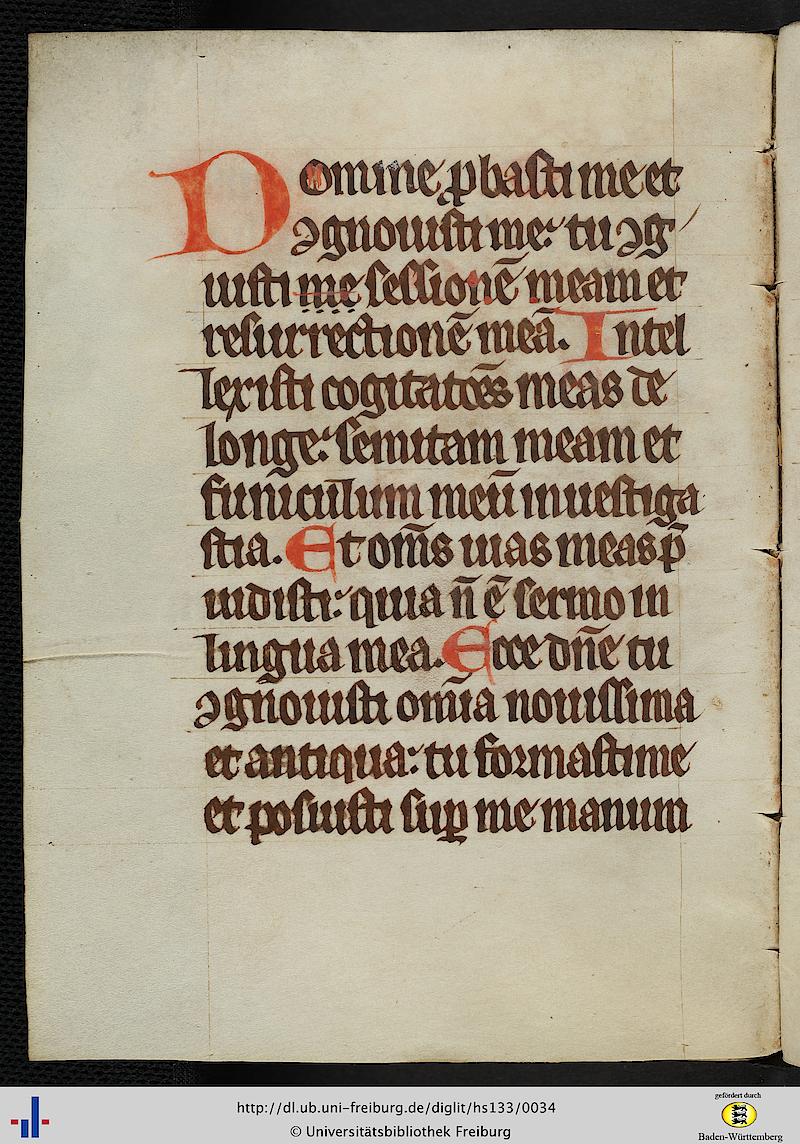 Domine ꝓbasti me et
ↄgnouisti me: tu ↄg
uisti me sessionē meam et
resurrectionē meā. Intel
lexisti cogitatōes meas de
longe: semitam meam et
funiculum meū inuestiga
stia. Et om̄s uias meas p̄
uidisti: quia n̄ ē sermo in
lingua mea. Ecce dn̄e tu
ↄgn̄ouisti om̄ia nouissima
et antiqua: tu formasti me
et posuisti suꝑ me manum
http://dl.ub.uni-freiburg.de/diglit/hs133/0034
© Universitätsbibliothek Freiburg
gefördert durch
Baden-Württemberg